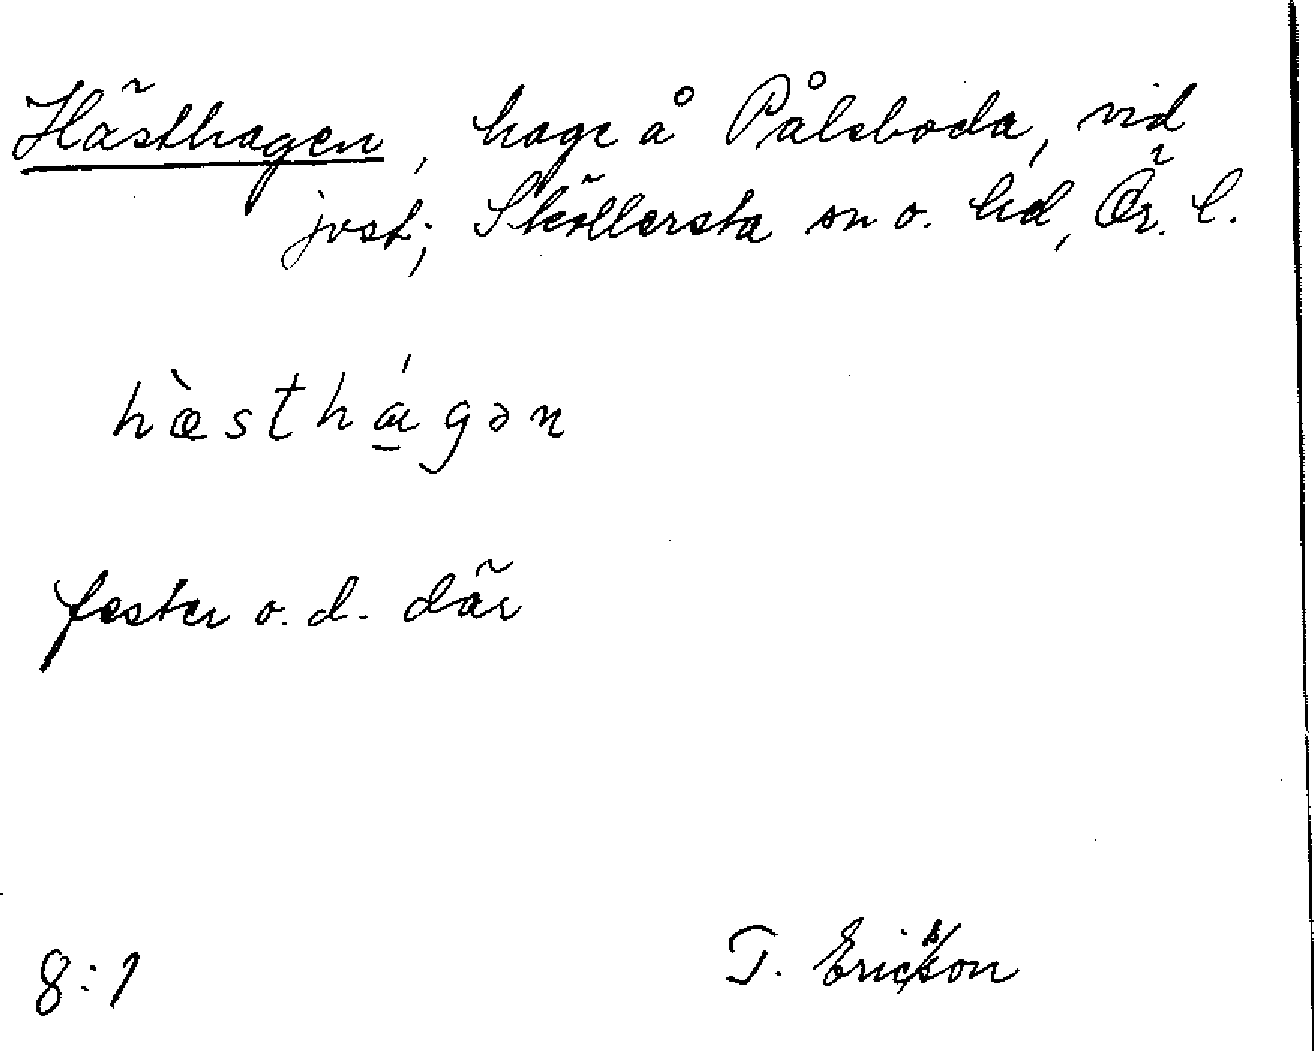 Hästhagen, hage å Pålsboda, vid
jvst; Sköllersta sn o. hd, Ör. l.
hæ̀sthágən
fester o. d. där
8:1
T. Ericsson